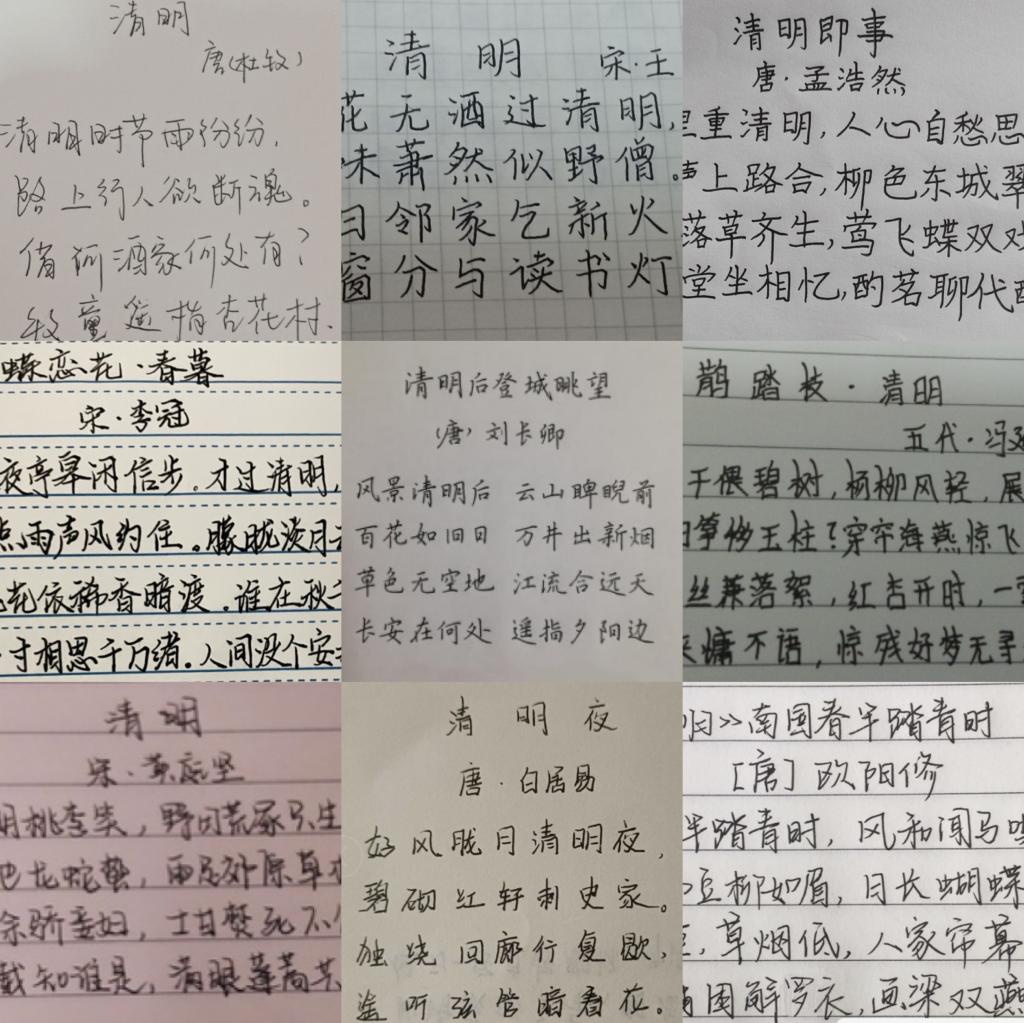 清明
唐(杜牧)
清明时节雨纷纷,
路上行人欲断魂。
借问酒家何处有?
牧童遥指杏花村.
清 明
宋·王
花无酒过清明,
味萧然似野僧。
日邻家乞新火
窗分与读书灯
清明即事
唐·孟浩然
里重清明,人心自愁思
声上路合,柳色东城翠
落草齐生,莺飞蝶双戏
堂坐相忆,酌茗聊代醉
蝶恋花·春暮
宋·李冠
夜亭皋闲信步.才过清明,
点雨声风约住。朦胧淡月云
花依稀香暗渡.谁在秋千
寸相思千万绪.人间没个安
清明后登城眺望
(唐)刘长卿
风景清明后 云山睥睨前
百花如旧日 万井出新烟
草色无空地 江流合远天
长安在何处 遥指夕阳边
鹊踏枝·清明
五代·冯延
干偎碧树,杨柳风轻,展
筝移玉柱?穿帘海燕惊飞
丝兼落絮,红杏开时,一
慵不语,惊残好梦无寻
清明
宋·黄庭坚
明桃李笑,野田荒冢只生
地龙蛇蛰,雨足郊原草木
余骄妾妇,士甘焚死不
载知谁是,满眼蓬蒿共
清明夜
唐·白居易
好风胧月清明夜,
碧砌红轩刺史家。
独绕回廊行复歇,
遥听弦管暗看花。
归>>南国春半踏青时
[唐]欧阳修
半踏青时,风和闻马嘶
豆柳如眉,日长蝴蝶
,草烟低,人家帘幕
困解罗衣,画梁双燕